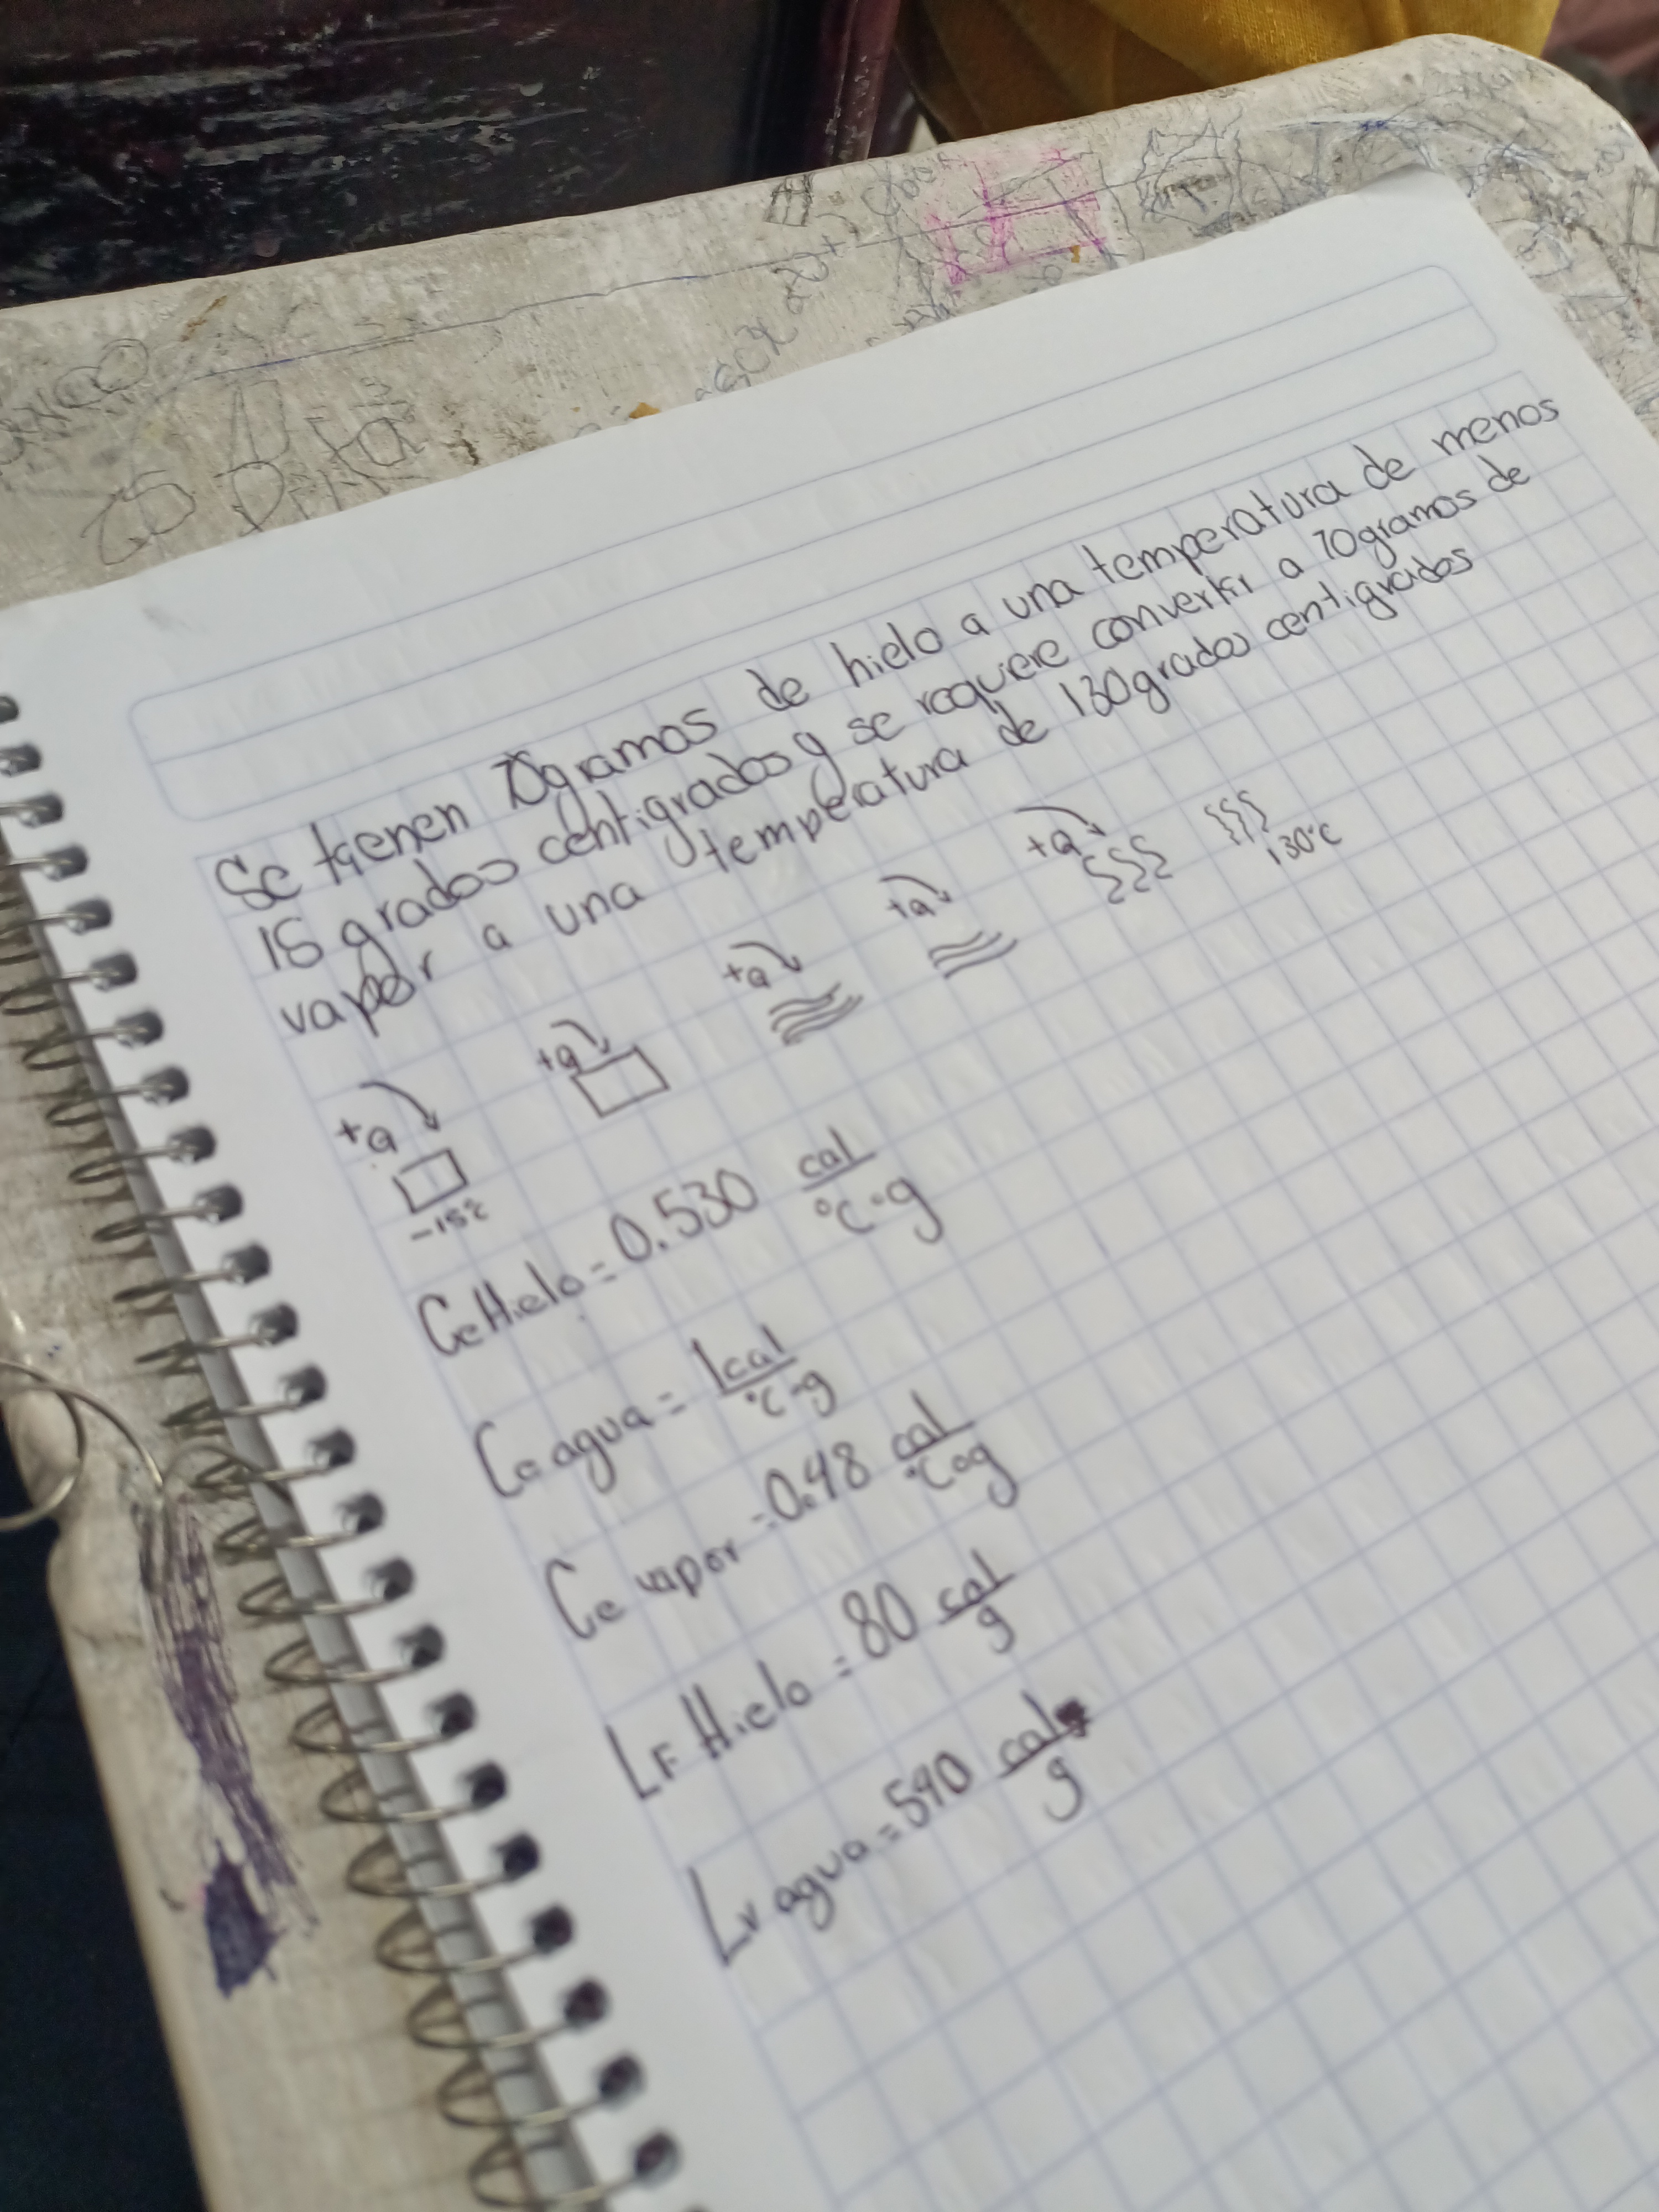 Se tienen 70gramos de hielo a una temperatura de menos
15 grados centigrados y se requiere convertir a 70gramos de
vapor a una temperatura de 130grados centigrados
+Q +Q +Q +Q +Q
-15°C 130°C
Ce Hielo = 0.530 cal/°C·g
Ce agua = 1cal/°C·g
Ce vapor = 0.48 cal/°C·g
LF Hielo = 80 cal/g
Lv agua = 540 cal/g